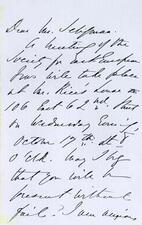 Dear Mr. Seligman:
A meeting of the
Society for
will take place
at Mr. Rice's
106 East 62nd Street
on Wednesday Evening
October 17th at 8
O'Clk. May I beg
that you will be
present without
fail? I am anxious